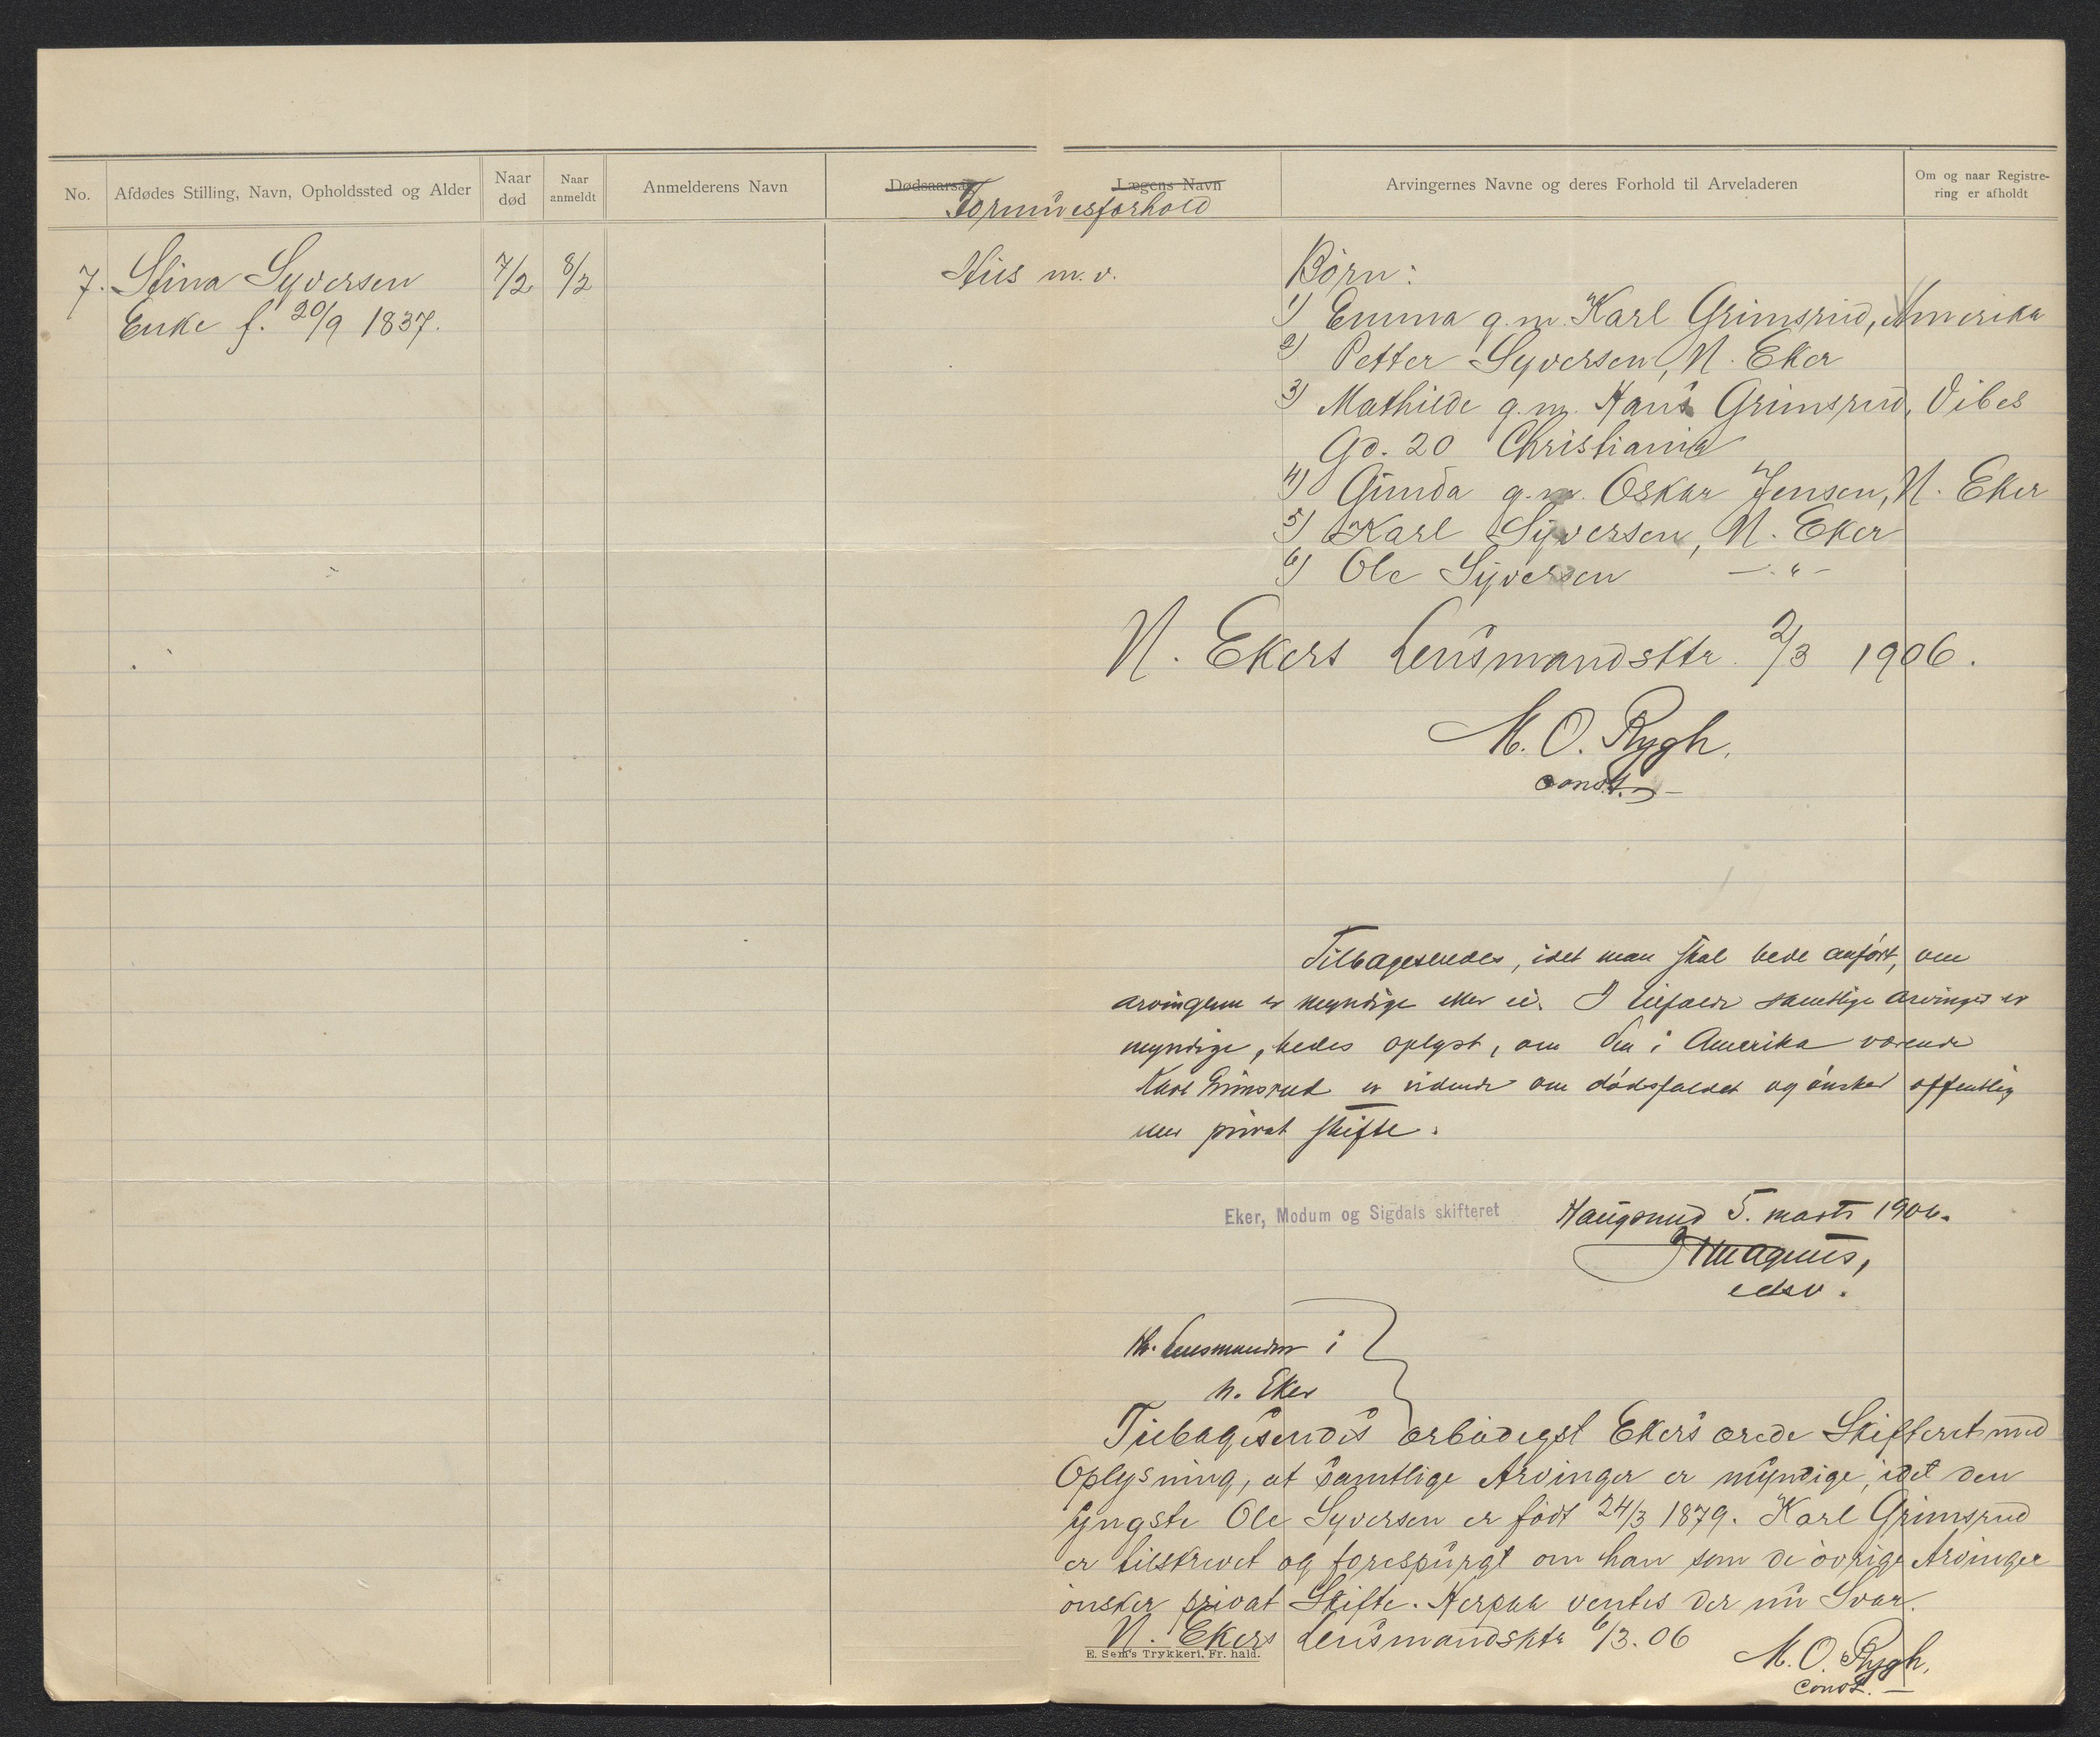 No.
Afdødes Stilling, Navn, Opholdssted og Alder
Naar død
Naar anmeldt
Anmelderens Navn
Dødsaarsag
Lægens Navn
Formuesforhold
Arvingernes Navne og deres Forhold til Arveladeren
Om og naar Registre-
ring er afholdt
7. Stina Syversen 7/2 8/2
Enke f. 20/9 1837.
Hus m. v.
Børn:
1) Emma g. m. Karl Grimsrud, Amerika
2) Petter Syversen, N. Eker
3) Mathilde g. m. Hans Grimsrud, Vibes
Gd. 20 Christiania
4) Gunda g. m. Oskar Jensen, N. Eker
5) Karl Syversen, N. Eker
6) Ole Syversen —"—
N. Ekers Lensmandsktr. 2/3 1906.
M. O. Rygh.
const.
Tilbagesendes, idet man skal bede anført, om
arvingerne er myndige eller ei. I tilfælde samtlige arvinger er
myndige, bedes oplyst, om den i Amerika værende
Karl Grimsrud er vidende om dødsfaldet og ønsker offentlig
eller privat skifte.
Eker, Modum og Sigdals skifteret
Haugsund 5. marts 1906.
Magnus,
edsv.
Hr. Lensmanden i
N. Eker
Tilbagesendes ærbødigst Ekers ærede Skifteret med
Oplysning, at samtlige Arvinger er myndige, idet den
yngste Ole Syversen er født 24/3 1879. Karl Grimsrud
er tilskrevet og forespurgt om han som de øvrige Arvinger
ønsker privat Skifte. Herpaa ventes der nu Svar.
N. Ekers Lensmandsktr 6/3. 06
M. O. Rygh.
const.
E. Sem's Trykkeri, Fr. hald.